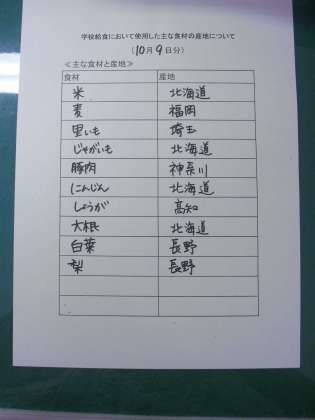 学校給食において使用した主な食材の産地について
(10月9日分)
≪主な食材と産地≫
食材 産地
米 北海道
麦 福岡
里いも 埼玉
じゃがいも 北海道
豚肉 神奈川
にんじん 北海道
しょうが 高知
大根 北海道
白菜 長野
梨 長野